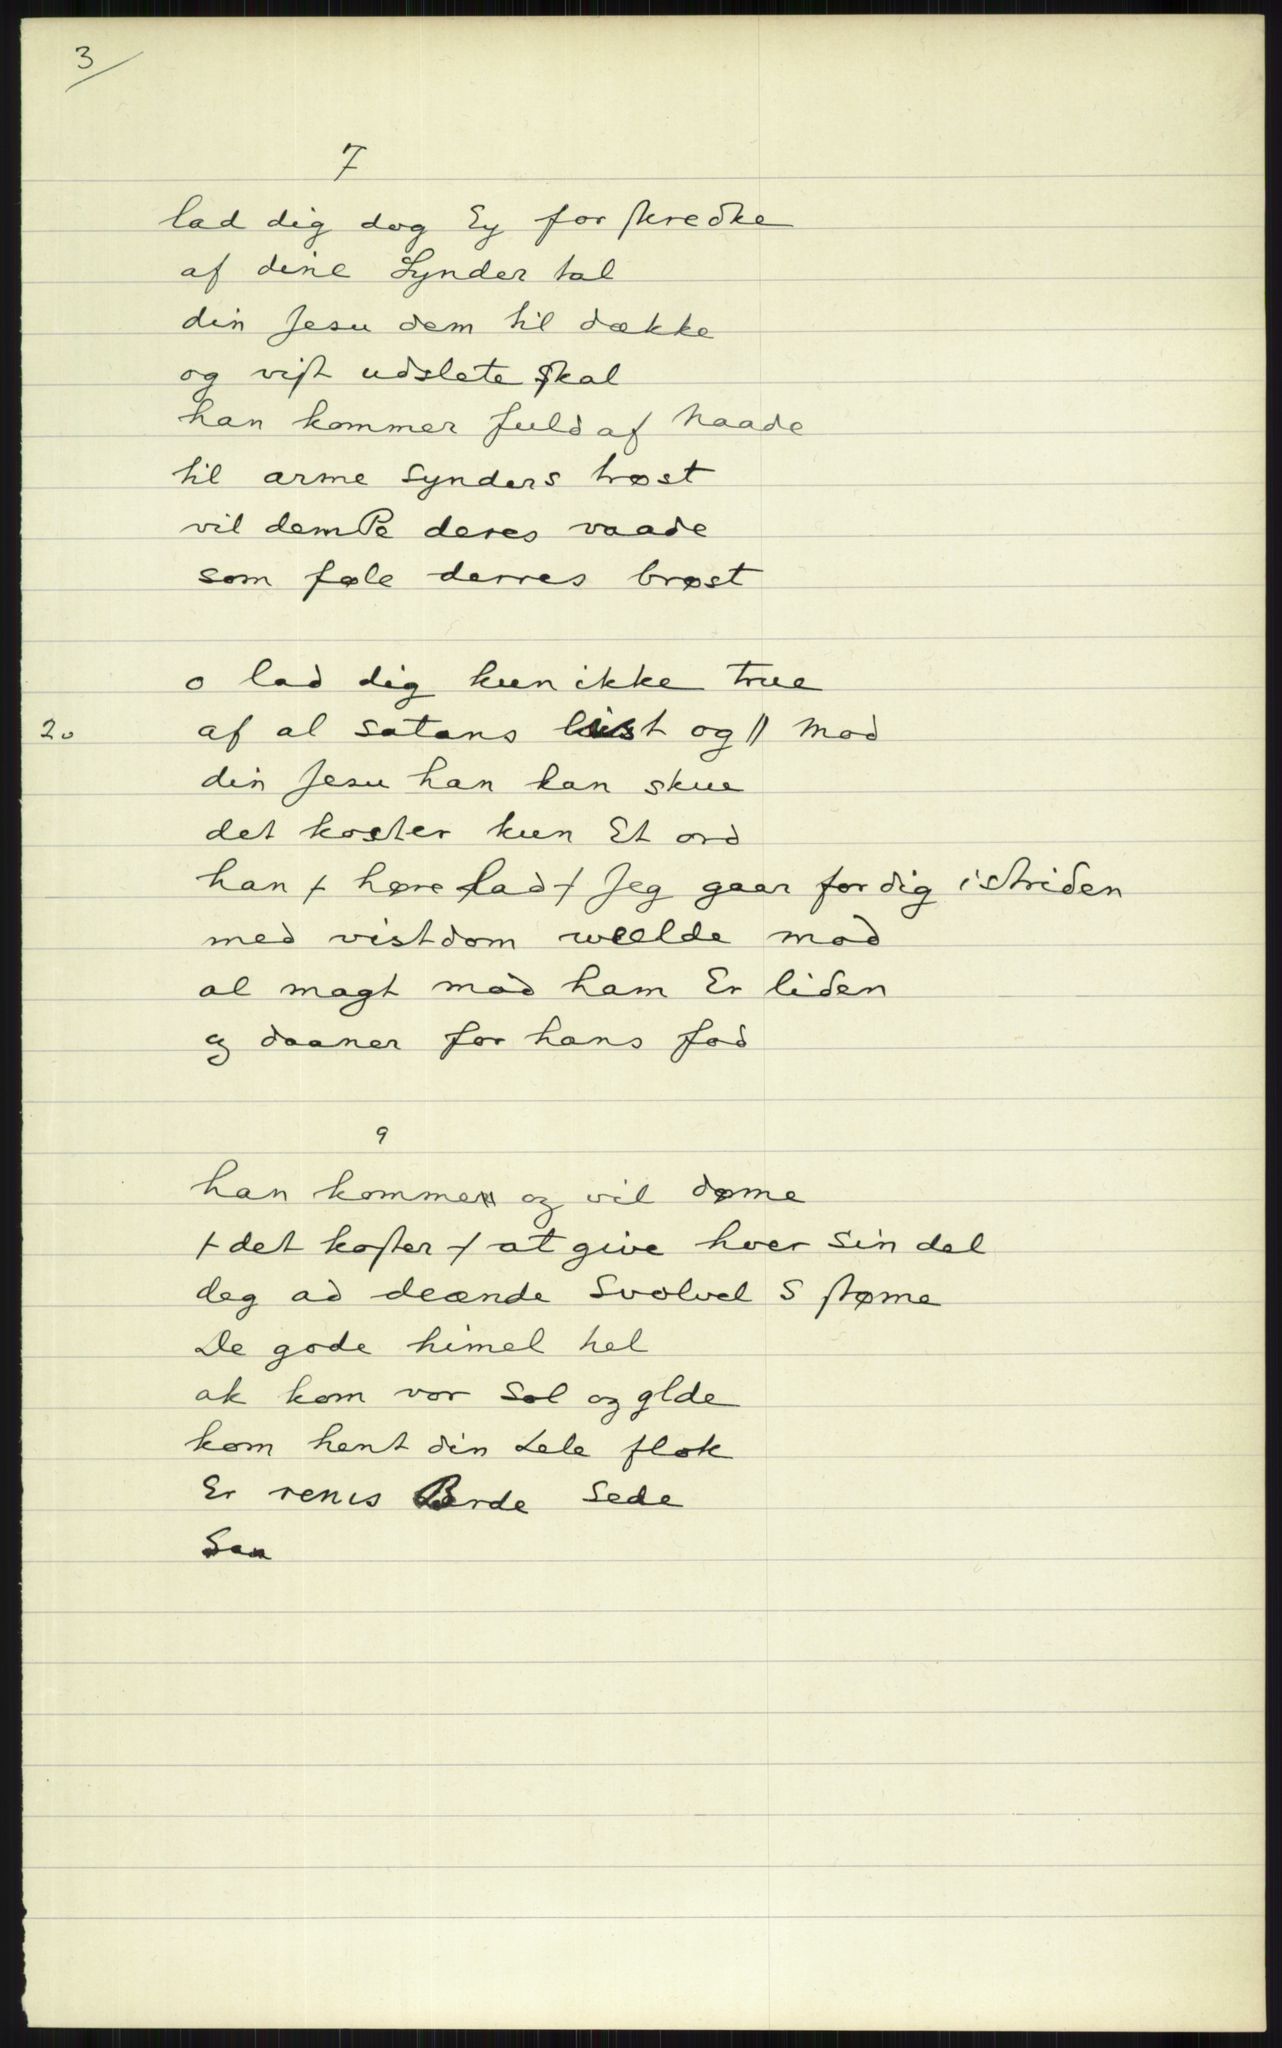 3
7
lad dig dog Ey for skredke
af dine Synder tal
din Jesu dem til dække
og vist udslete skal
han kommer fuld af Naade
til arme Synders trøst
vil dempe deres vaade
som føle derres brøst
o lad dig kun ikke true
20 af al satans list og // Mod
din Jesu han kan skue
det koster kun Et ord
han + høre lad + Jeg gaar for dig i striden
med vistdom wælde mod
al magt mod ham Er liden
og daaner for hans fod
9
han kommer og vil døme
+ det koster + at give hver Sin del
deg ad deænde Svolvel S støme
De gode himel hel
ak kom vor Sol og glde
kom hent din Lele flok
Er renis Berde Sede
Saa